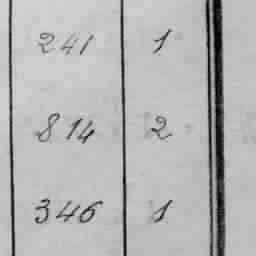 241 1
814 2
346 1